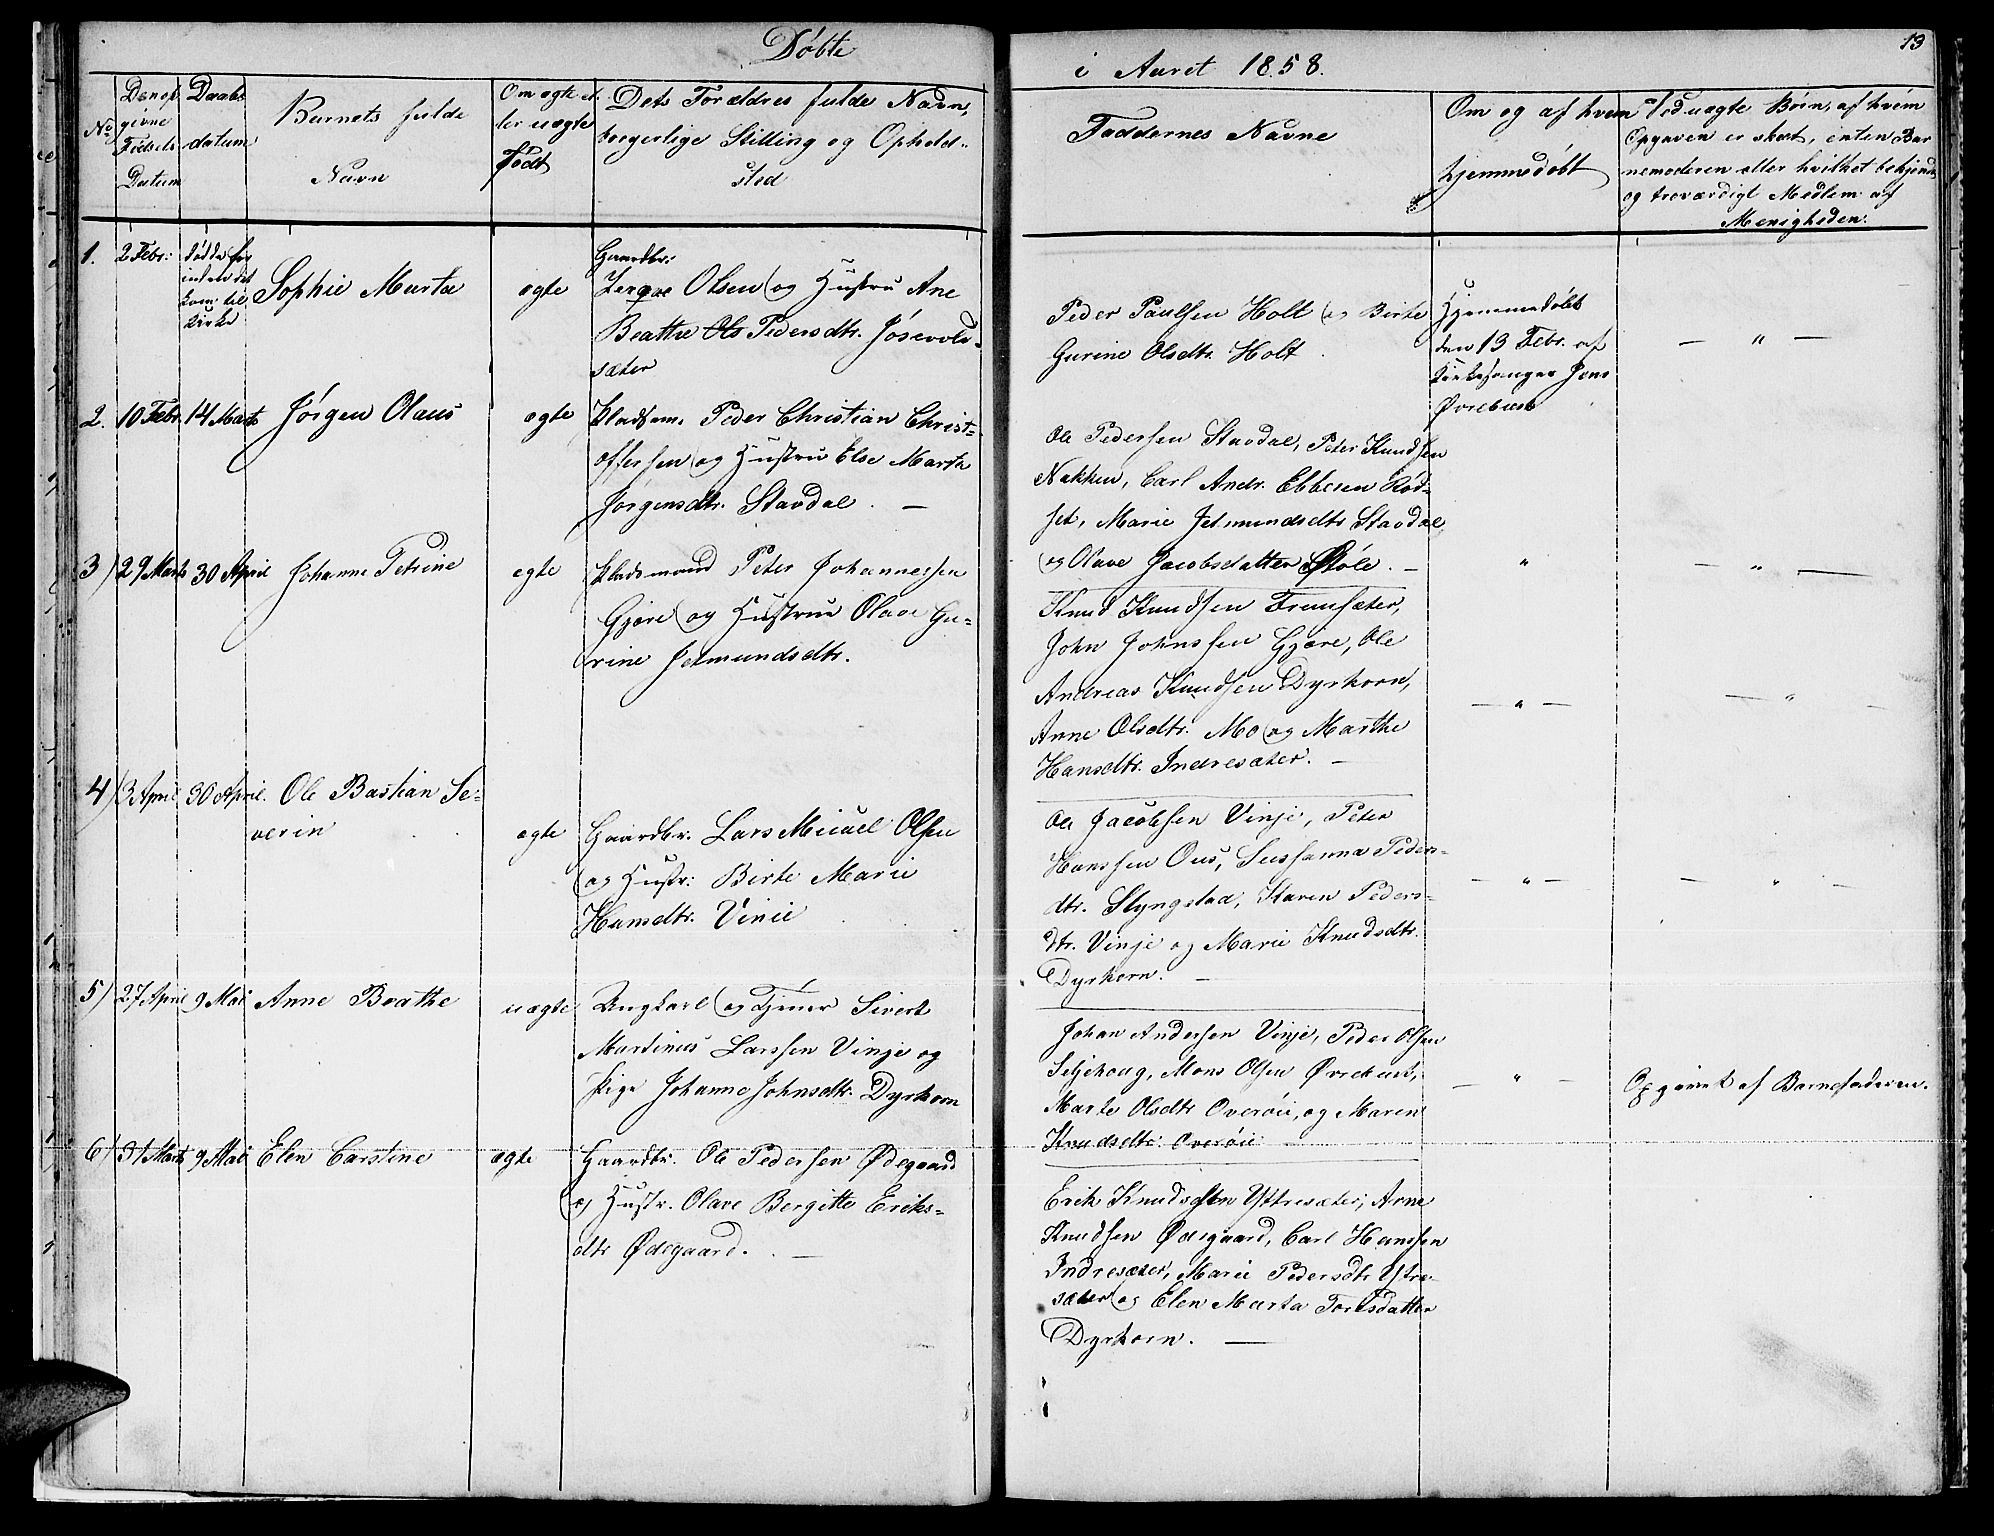 Døbte
i Aaret 1858.
13
No
Den op
givne
Fødsels
Datum
Daabs
datum
Barnets fulde
Navn
Om ægte el
ler uægte
Født
Dets Forældres fulde Navn,
borgerlige Stilling og Opholds
sted
Faddernes Navne
Om og af hvem
hjemmedøbt
Ved uægte Børn, af hvem
Opgaven er skeet, enten Bar
nemoderen eller hvilket bekjendt
og troværdigt Medlem af
Menigheden.
1.
2 Febr:
døde før
inden det
kom til
Kirke
Sophie Marta
ægte
Gaardbr:
Olsen og Hustru Ane
Beathe Ols Pedersdtr. Jøsevold-
sæter
Peder Paulsen Holt og Birte
Gurine Olsdtr. Holt.
Hjemmedøbt
den 13 Febr. af
Kirkesanger Jens
Øvrebust
— " —
2.
10 Febr
14 Marts
Jørgen Olaus
ægte
Pladsm. Peder Christian Christ-
offersen og Hustru Else Marta
Jørgensdtr. Stavdal. —
Ole Pedersen Stavdal, Peter Knudsen
Nakken, Carl Andr. Ebbesen Rød-
set, Marie Jetmundsdtr Stavdal,
og Olave Jacobsdatter Støle. —
"
— " —
3)
29 Marts
30 April
Johanne Petrine
ægte
Pladsmand Peter Johannessen
Gjøre og Hustrue Olave Gu-
rine Jetmundsdtr.
Knud Knudsen Fremsæter,
John Johnssen Gjøre, Ole
Andreas Knudsen Dyrkorn,
Anne Olsdtr. Mo og Marthe
Hansdtr. Indresæter. —
— " —
— "
4)
3 April
30 April.
Ole Bastian Se-
verin
ægte
Gaardbr. Lars Micael Olsen
og Hustr: Birte Marie
Hansdtr. Vinie
Ole Jacobsen Vinje, Peter
Hanssen Ous, Sussanna Peders-
dtr. Slyngstad, Karen Peders-
dtr. Vinje og Marie Knudsdtr.
Dyrkorn. —
— " —
— " —
5)
27 April
9 Mai
Anne Beathe
uægte
Ungkarl og Tjener Sivert
Martinus Larssen Vinje og
Pige Johanne Johnsdtr. Dyrkorn
Johan Andersen Vinje, Peder Olsen
Seljehoug, Mons Olsen Øvrebust,
Marte Olsdtr Overøie, og Maren
Knudsdtr. Overøie
— " —
Opgivet af Barnefaderen.
6)
31 Marts
9 Mai
Elen Carstine
ægte
Gaardbr. Ole Pedersen Ødegaard
og Hustr. Olave Bergitte Eriks-
dtr Ødegaard. —
Erik Knudssen Yttresæter, Arne
Knudsen Ødegaard, Carl Hanssen
Indresæter, Marie Pedersdtr Ytre-
sæter og Elen Marta Torisdatter
Dyrkorn. —